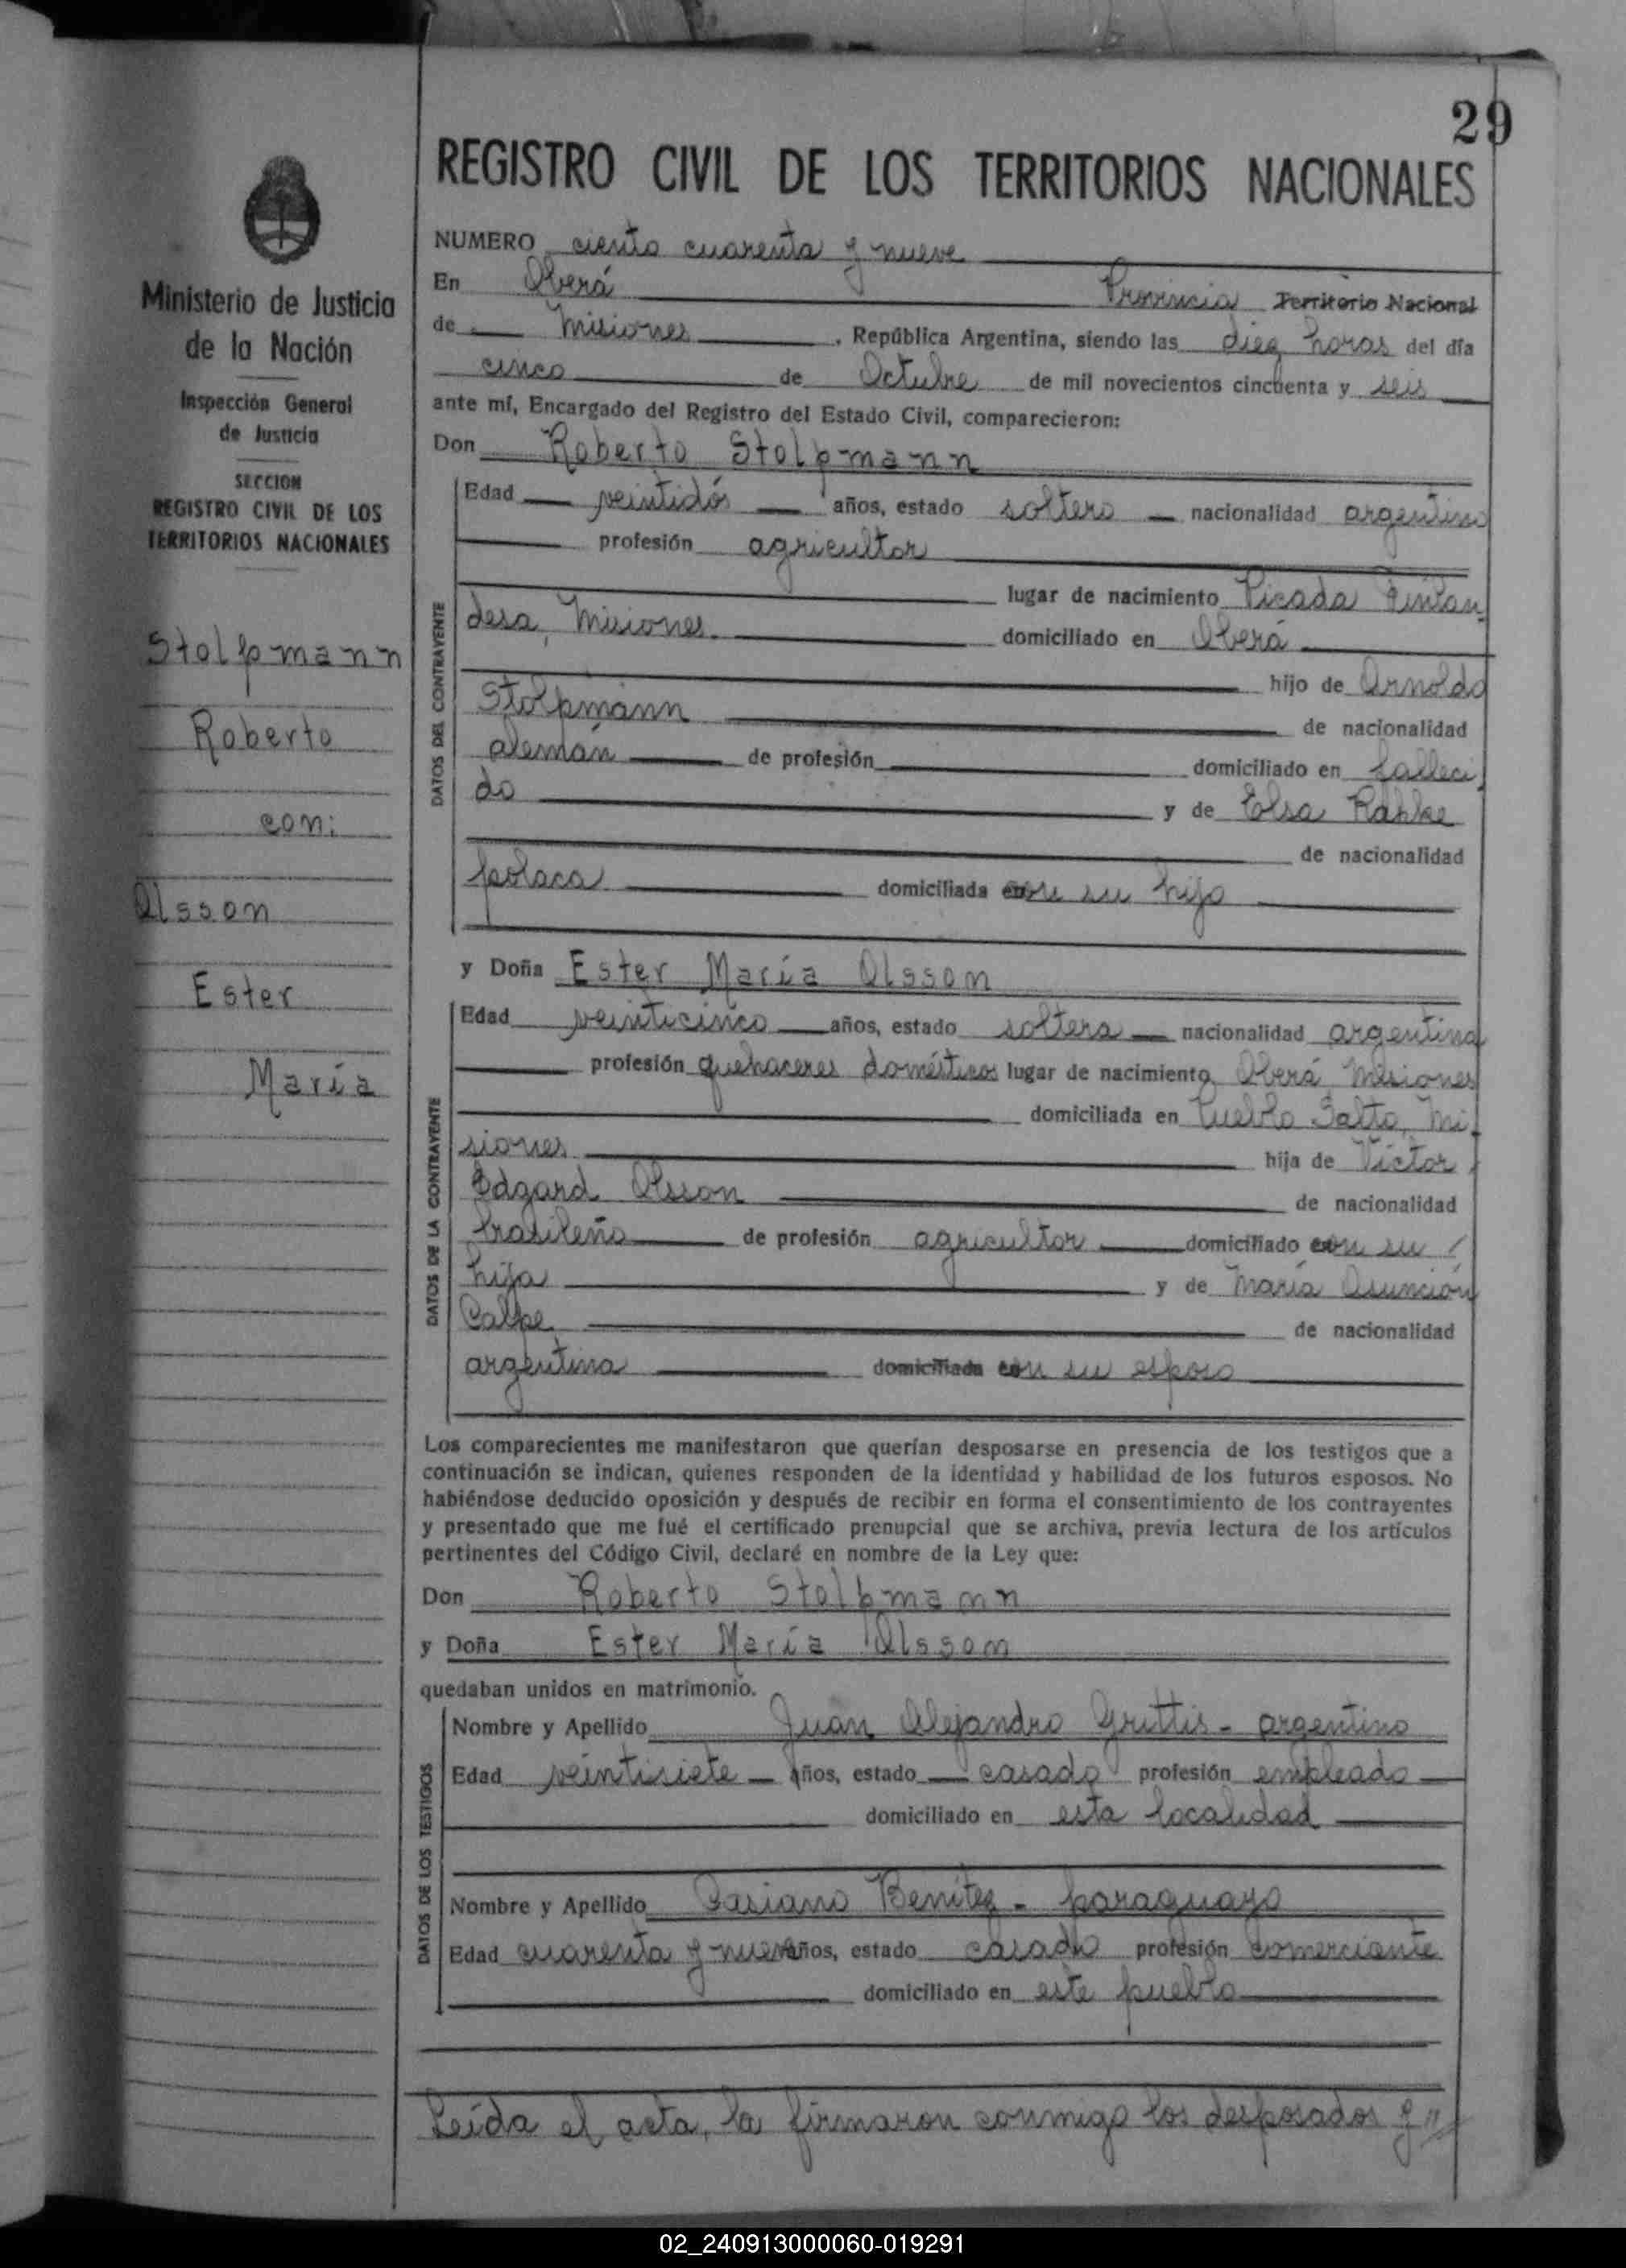 29
REGISTRO CIVIL DE LOS TERRITORIOS NACIONALES
Ministerio de Justicia
de la Nación
Inspección General
de Justicia
SECCION
REGISTRO CIVIL DE LOS
TERRITORIOS NACIONALES
Stolpmann
Roberto
con:
Olsson
Ester
María
NUMERO ciento cuarenta y nueve
En Oberá Provincia Territorio Nacional
de Misiones . República Argentina, siendo las diez horas del día
cinco de Octubre de mil novecientos cincuenta y seis
ante mí, Encargado del Registro del Estado Civil, comparecieron:
Don Roberto Stolpmann
DATOS DEL CONTRAYENTE
Edad veintidós años, estado soltero nacionalidad argentino
profesión agricultor
lugar de nacimiento Picada Finlan-
desa, Misiones. domiciliado en Oberá
hijo de Arnoldo
Stolpmann de nacionalidad
alemán de profesión domiciliado en falleci-
do y de Elsa
de nacionalidad
polaca domiciliada con su hijo
y Doña Ester María Olsson
DATOS DE LA CONTRAYENTE
Edad veinticinco años, estado soltera nacionalidad argentina
profesión quehaceres domésticos lugar de nacimiento Oberá Misiones
domiciliada en Pueblo Salto, Mi-
siones hija de Víctor
Edgard Olsson de nacionalidad
brasileño de profesión agricultor domiciliado con su
hija y de María Asunción
Calpe de nacionalidad
argentina domiciliada con su esposo
Los comparecientes me manifestaron que querían desposarse en presencia de los testigos que a
continuación se indican, quienes responden de la identidad y habilidad de los futuros esposos. No
habiéndose deducido oposición y después de recibir en forma el consentimiento de los contrayentes
y presentado que me fué el certificado prenupcial que se archiva, previa lectura de los artículos
pertinentes del Código Civil, declaré en nombre de la Ley que:
Don Roberto Stolpmann
y Doña Ester María Olsson
quedaban unidos en matrimonio.
DATOS DE LOS TESTIGOS
Nombre y Apellido Juan Alejandro Grittis - argentino
Edad veintisiete años, estado casado profesión empleado
domiciliado en esta localidad
Nombre y Apellido Casiano Benítez - paraguayo
Edad cuarenta y nueve años, estado casado profesión comerciante
domiciliado en este pueblo
Leída el acta, la firmaron conmigo los desposados y //
02_240913000060-019291